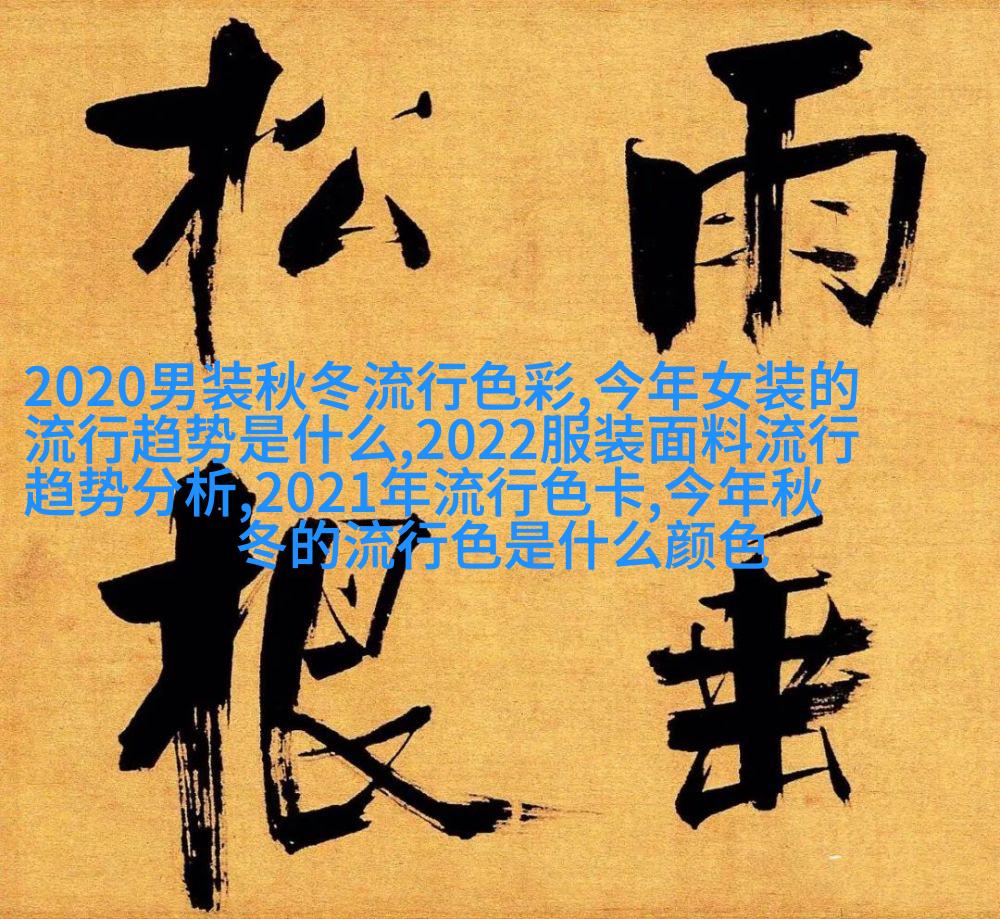 雨垂
松根
2020男装秋冬流行色彩,今年女装的
流行趋势是什么,2022服装面料流行
趋势分析,2021年流行色卡,今年秋
冬的流行色是什么颜色